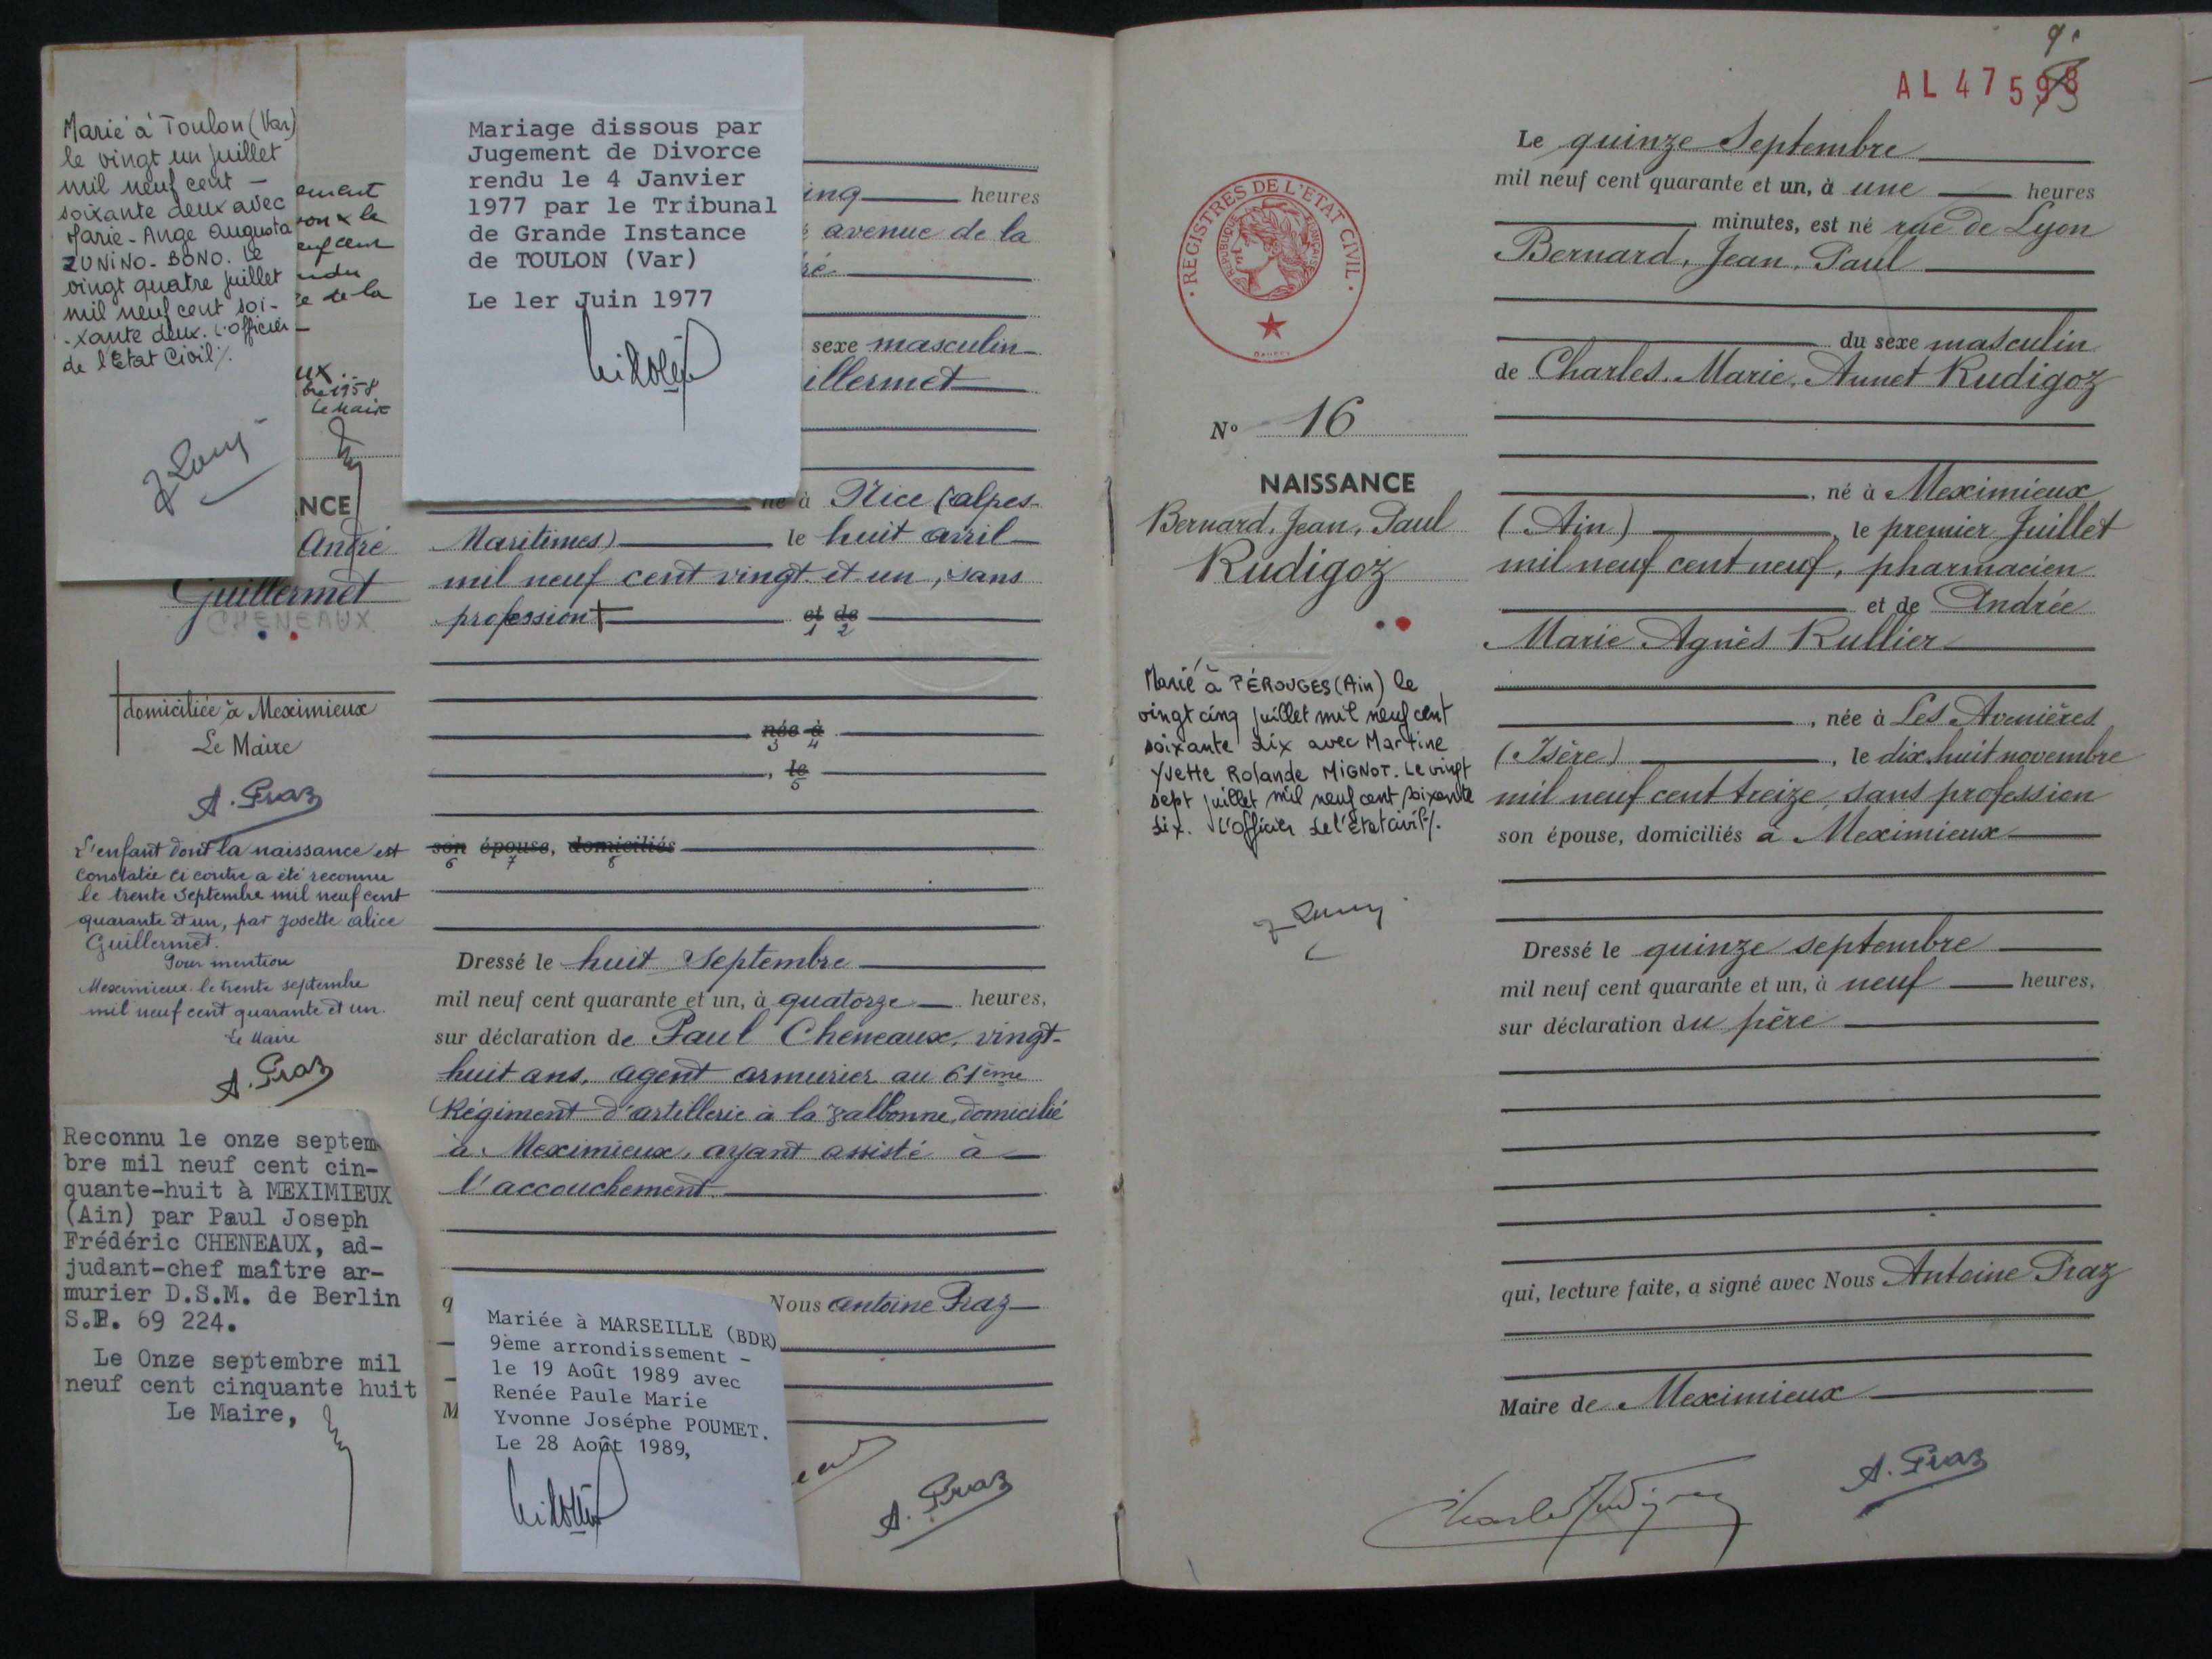 Marié à Toulon (Var)
le vingt un juillet
mil neuf cent —
soixante deux avec
Marie-Ange Augusta
ZUNINO-BONO. Le
vingt quatre juillet
mil neuf cent soi-
-xante deux. L'officier
de l'Etat Civil ⁒.
ement
euf cent
endu
de la
ux
1958
Le Maire
NCE
André
Guillermet
CHENEAUX
domiciliée à Meximieux
Le Maire
A. Praz
L'enfant dont la naissance est
constatée ci contre a été reconnu
le trente Septembre mil neuf cent
quarante et un, par Josette Alice
Guillermet.
Pour mention
Meximieux le trente septembre
mil neuf cent quarante et un.
Le Maire
A. Praz
Reconnu le onze septem
bre mil neuf cent cin-
quante-huit à MEXIMIEUX
(Ain) par Paul Joseph
Frédéric CHENEAUX, ad-
judant-chef maître ar-
murier D.S.M. de Berlin
S.P. 69 224.
Le Onze septembre mil
neuf cent cinquante huit
Le Maire,
Mariage dissous par
Jugement de Divorce
rendu le 4 Janvier
1977 par le Tribunal
de Grande Instance
de TOULON (Var)
Le 1er Juin 1977
inq heures
avenue de la
ré
sexe masculin
illermet
né à Nice (Alpes-
Maritimes) le huit avril
mil neuf cent vingt et un, sans
profession + et de
1 2
née à
3 4
, le
5
son épouse, domiciliés
6 7 8
Dressé le huit Septembre
mil neuf cent quarante et un, à quatorze heures,
sur déclaration de Paul Cheneaux, vingt-
huit ans, agent armurier au 61ème
Régiment d'artillerie à la Valbonne, domicilié
à Meximieux, ayant assisté à
l'accouchement
q Nous Antoine Praz
M
Mariée à MARSEILLE (BDR)
9ème arrondissement -
le 19 Août 1989 avec
Renée Paule Marie
Yvonne Josèphe POUMET.
Le 28 Août 1989,
A. Praz
AL 4759
REGISTRES DE L'ETAT CIVIL
REPUBLIQUE FRANÇAISE
N° 16
NAISSANCE
Bernard, Jean, Paul
Rudigoz
Marié à PÉROUGES (Ain) le
vingt cinq juillet mil neuf cent
soixante dix avec Martine
Yvette Rolande MIGNOT. Le vingt
sept juillet mil neuf cent soixante
dix. L'officier de l'Etat civil ⁒.
Le quinze Septembre
mil neuf cent quarante et un, à une heures
minutes, est né rue de Lyon
Bernard, Jean, Paul
du sexe masculin
de Charles, Marie, Annet Rudigoz
, né à Meximieux
(Ain) , le premier Juillet
mil neuf cent neuf, pharmacien
et de Andrée
Marie Agnès Rullier
, née à Les Avenières
(Isère) , le dix huit novembre
mil neuf cent treize, sans profession
son épouse, domiciliés à Meximieux
Dressé le quinze septembre
mil neuf cent quarante et un, à neuf heures,
sur déclaration du père
qui, lecture faite, a signé avec Nous Antoine Praz
Maire de Meximieux
Charles Rudigoz
A. Praz